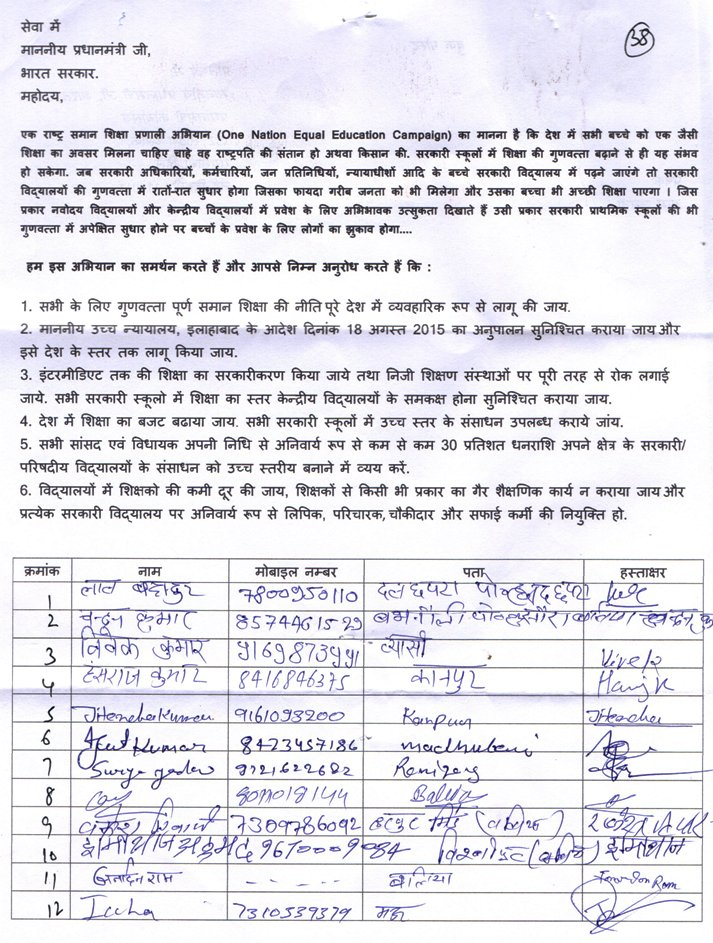 38
सेवा में
माननीय प्रधानमंत्री जी,
भारत सरकार.
महोदय,
एक राष्ट्र समान शिक्षा प्रणाली अभियान (One Nation Equal Education Campaign) का मानना है कि देश में सभी बच्चे को एक जैसी
शिक्षा का अवसर मिलना चाहिए चाहे वह राष्ट्रपति की संतान हो अथवा किसान की. सरकारी स्कूलों में शिक्षा की गुणवत्ता बढ़ाने से ही यह संभव
हो सकेगा. जब सरकारी अधिकारियों, कर्मचारियों, जन प्रतिनिधियों, न्यायाधीशों आदि के बच्चे सरकारी विद्यालय में पढ़ने जाएंगे तो सरकारी
विद्यालयों की गुणवत्ता में रातों-रात सुधार होगा जिसका फायदा गरीब जनता को भी मिलेगा और उसका बच्चा भी अच्छी शिक्षा पाएगा । जिस
प्रकार नवोदय विद्यालयों और केन्द्रीय विद्यालयों में प्रवेश के लिए अभिभावक उत्सुकता दिखाते हैं उसी प्रकार सरकारी प्राथमिक स्कूलों की भी
गुणवत्ता में अपेक्षित सुधार होने पर बच्चों के प्रवेश के लिए लोगों का झुकाव होगा....
हम इस अभियान का समर्थन करते हैं और आपसे निम्न अनुरोध करते हैं कि :
1. सभी के लिए गुणवत्ता पूर्ण समान शिक्षा की नीति पूरे देश में व्यवहारिक रूप से लागू की जाय.
2. माननीय उच्च न्यायालय, इलाहाबाद के आदेश दिनांक 18 अगस्त 2015 का अनुपालन सुनिश्चित कराया जाय और
इसे देश के स्तर तक लागू किया जाय.
3. इंटरमीडिएट तक की शिक्षा का सरकारीकरण किया जाये तथा निजी शिक्षण संस्थाओं पर पूरी तरह से रोक लगाई
जाये. सभी सरकारी स्कूलो में शिक्षा का स्तर केन्द्रीय विद्यालयों के समकक्ष होना सुनिश्चित कराया जाय.
4. देश में शिक्षा का बजट बढाया जाय. सभी सरकारी स्कूलों में उच्च स्तर के संसाधन उपलब्ध कराये जांय.
5. सभी सांसद एवं विधायक अपनी निधि से अनिवार्य रूप से कम से कम 30 प्रतिशत धनराशि अपने क्षेत्र के सरकारी/
परिषदीय विद्यालयों के संसाधन को उच्च स्तरीय बनाने में व्यय करें.
6. विद्यालयों में शिक्षको की कमी दूर की जाय, शिक्षकों से किसी भी प्रकार का गैर शैक्षणिक कार्य न कराया जाय और
प्रत्येक सरकारी विद्यालय पर अनिवार्य रूप से लिपिक, परिचारक, चौकीदार और सफाई कर्मी की नियुक्ति हो.
क्रमांक नाम मोबाइल नम्बर पता हस्ताक्षर
1 लाल बहादुर 7800950110
2 चन्दन कुमार
3 विवेक कुमार व्यासी Vivek
4 हंसराज कुमार 8416846375 कानपुर
5 Jitendra Kumar 9161093200 Kanpur Jitendra
6 Kumar 8423457186 madhubani
7 Surya yadav 9721622682
8
9 7309786092
10 9670009084
11 जनार्दन राम बलिया
12 7310539379 मऊ